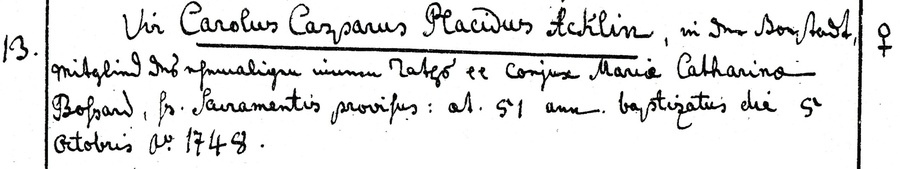 Vir Carolus Casparus Placidus Acklin, in der Vorstadt, ♀
13. Mitglied des ehmaligen innern Raths et conjux Mariæ Catharina
Bossard, ss. Sacramentis provisus: æt. 51 ann. baptizatus die 5
Octobris Aº 1748.